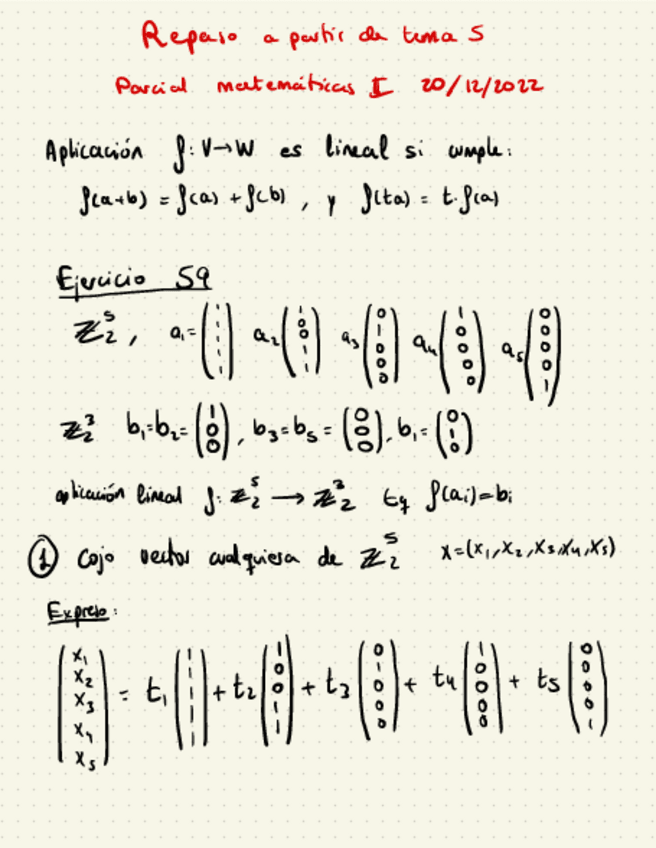 Repaso a partir de tema 5
Parcial matemáticas I 20/12/2022
Aplicación f: V→W es lineal si cumple:
f(a+b) = f(a) + f(b) , y f(ta) = t·f(a)
Ejercicio 59
ℤ₂⁵ , a₁ = (1 1 1 1 1) a₂ (1 0 0 1 1) a₃ (0 1 0 0 0) a₄ (1 0 0 0 0) a₅ (0 0 0 0 1)
ℤ₂³ b₁=b₂= (1 0 0) , b₃=b₅ = (0 0 0) , b₁ = (0 1 0)
aplicación lineal f: ℤ₂⁵ → ℤ₂³ tq f(aᵢ)=bᵢ
① Cojo vector cualquiera de ℤ₂⁵ x=(x₁,x₂,x₃,x₄,x₅)
Expreso:
(x₁ x₂ x₃ x₄ x₅) = t₁ (1 1 1 1 1) + t₂ (1 0 0 1 1) + t₃ (0 1 0 0 0) + t₄ (1 0 0 0 0) + t₅ (0 0 0 0 1)